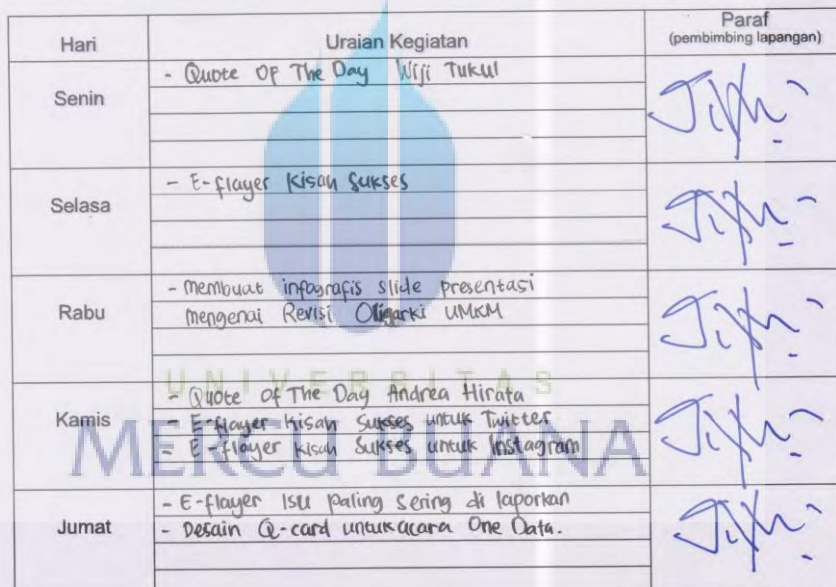 Hari Uraian Kegiatan Paraf
(pembimbing lapangan)
Senin
- Quote Of The Day Wiji Tukul
Selasa
- E-flayer Kisah Sukses
Rabu
- membuat infografis slide presentasi
mengenai Revisi Oligarki UMKM
UNIVERSITAS
MERCU BUANA
Kamis
- Quote Of The Day Andrea Hirata
- E-flayer Kisah Sukses untuk Twitter
- E-flayer Kisah Sukses untuk Instagram
Jumat
- E-flayer Isu paling sering di laporkan
- Desain Q-card untuk acara One Data.